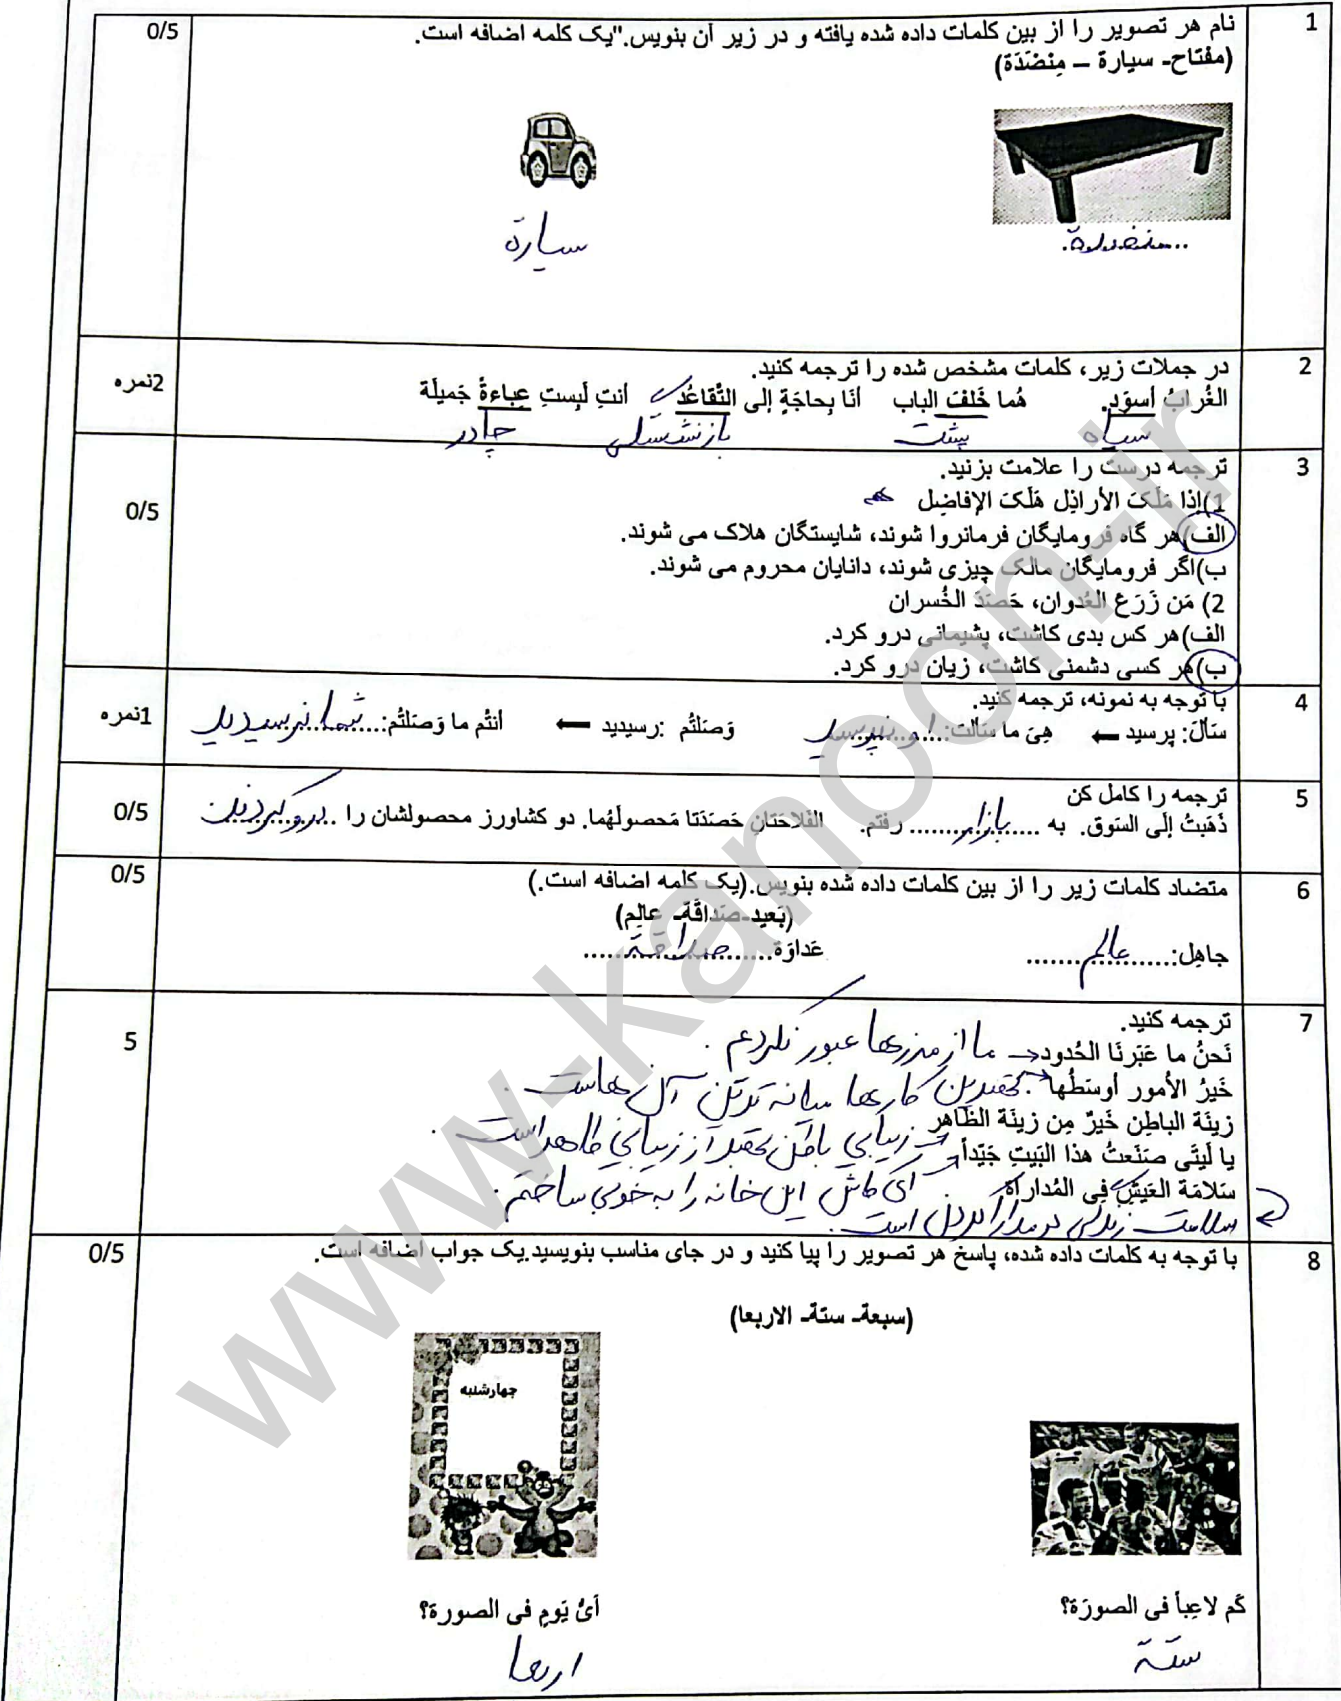 1
نام هر تصویر را از بین کلمات داده شده یافته و در زیر آن بنویس."یک کلمه اضافه است.
0/5
(مفتاح- سیارة – مِنْضَدَة)
منضدة
سیارة
2
در جملات زیر، کلمات مشخص شده را ترجمه کنید.
2نمره
الغُرابُ أسوَد. هُما خَلفَ الباب أنَا بِحاجَةٍ إلی التَّقاعُد أنتِ لَبِستِ عباءةً جَمیلَة
سیاه پشت بازنشستگی چادر
3
ترجمه درست را علامت بزنید.
0/5
1)إذا مَلَکَ الأراذِل هَلَکَ الإفاضِل
الف)هر گاه فرومایگان فرمانروا شوند، شایستگان هلاک می شوند.
ب)اگر فرومایگان مالک چیزی شوند، دانایان محروم می شوند.
2) مَن زَرَعَ العُدوان، حَصَدَ الخُسران
الف)هر کس بدی کاشت، پشیمانی درو کرد.
ب)هر کسی دشمنی کاشت، زیان درو کرد.
4
با توجه به نمونه، ترجمه کنید.
1نمره
سَألَ: پرسید ← هِیَ ما سَألت: او نپرسید وَصَلتُم :رسیدید ← أنتُم ما وَصَلتُم: شما نرسیدید
5
ترجمه را کامل کن
0/5
ذَهَبتُ إلَی السَوق. به بازار رفتم. الفَلاحَتانِ حَصَدَتا مَحصولَهُما. دو کشاورز محصولشان را درو کردند.
6
متضاد کلمات زیر را از بین کلمات داده شده بنویس.(یک کلمه اضافه است.)
0/5
(بَعید-صَداقَة- عالِم)
جاهِل: عالم عَداوَة صداقة
7
ترجمه کنید.
5
نَحنُ ما عَبَرنَا الحُدود → ما از مرزها عبور نکردیم.
خَیرُ الأمور أوسَطُها → بهترین کارها میانه ترین آن هاست.
زینَة الباطِن خَیرٌ مِن زینَة الظاهِر → زیبایی باطن بهتر از زیبایی ظاهر است.
یا لَیتَی صَنَعتُ هذا البَیتِ جَیّداً → ای کاش این خانه را به خوبی ساختم.
سَلامَة العَیشِ فِی المُداراة
سلامت زندگی در مدارا کردن است.
8
با توجه به کلمات داده شده، پاسخ هر تصویر را پیا کنید و در جای مناسب بنویسید.یک جواب اضافه است.
0/5
(سبعة- ستة- الاربعا)
چهارشنبه
کَم لاعِباً فی الصورَة؟ أیُّ یَومٍ فی الصورة؟
ستة اربعا
www-kanoon-ir